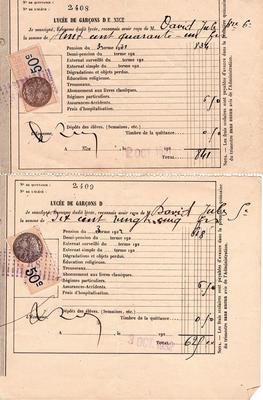 N° DE QUITTANCE :
N° DE L'ÉLÈVE :
2408
LYCÉE DE GARÇONS DE NICE
Je soussigné, Econome dudit lycée, reconnais avoir reçu de M. David Jules
la somme de huit cent quarante et un frs
Pension du terme 193
Demi-pension du terme 192
External surveillé du terme 192
External simple du terme 192
Dégradations et objets perdus.
Education religieuse.
Trousseau.
Abonnement aux livres classiques.
Régimes particuliers
Assurances-Accidents.
Frais d'hospitalisation.
50c
Dépôts des élèves. (Semaines, etc.)
L'Econome, Timbre de la quittance
A Nice, le 192
TOTAL. 841
NOTA. — Les frais scolaires sont payables d'avance dans la journée
du trimestre sans aucun avis de l'Administration.
N° DE QUITTANCE :
N° DE L'ÉLÈVE :
2409
LYCÉE DE GARÇONS D
Je soussigné, Econome dudit lycée, reconnais avoir reçu de M. David Jules
la somme de Six cent vingt cinq frs
Pension du terme 192
Demi-pension du terme 192
External surveillé du terme 192
External simple du terme 192
Dégradations et objets perdus.
Education religieuse.
Trousseau.
Abonnement aux livres classiques.
Régimes particuliers
Assurances-Accidents.
Frais d'hospitalisation.
50c
Dépôts des élèves. (Semaines, etc.)
Timbre de la quittance
A , le 192
3 OCT 1932
TOTAL. 625
NOTA. — Les frais scolaires sont payables d'avance dans la journée
du trimestre sans aucun avis de l'Administration.